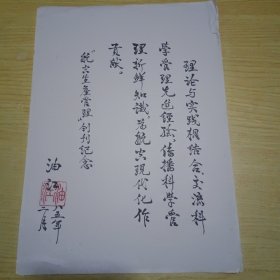 理论与实践相结合,交流科
学管理先进经验,传播科学管
理新鲜知识,为航空现代化作
贡献。
《航空质量管理》创刊纪念
油江
八五年
二月